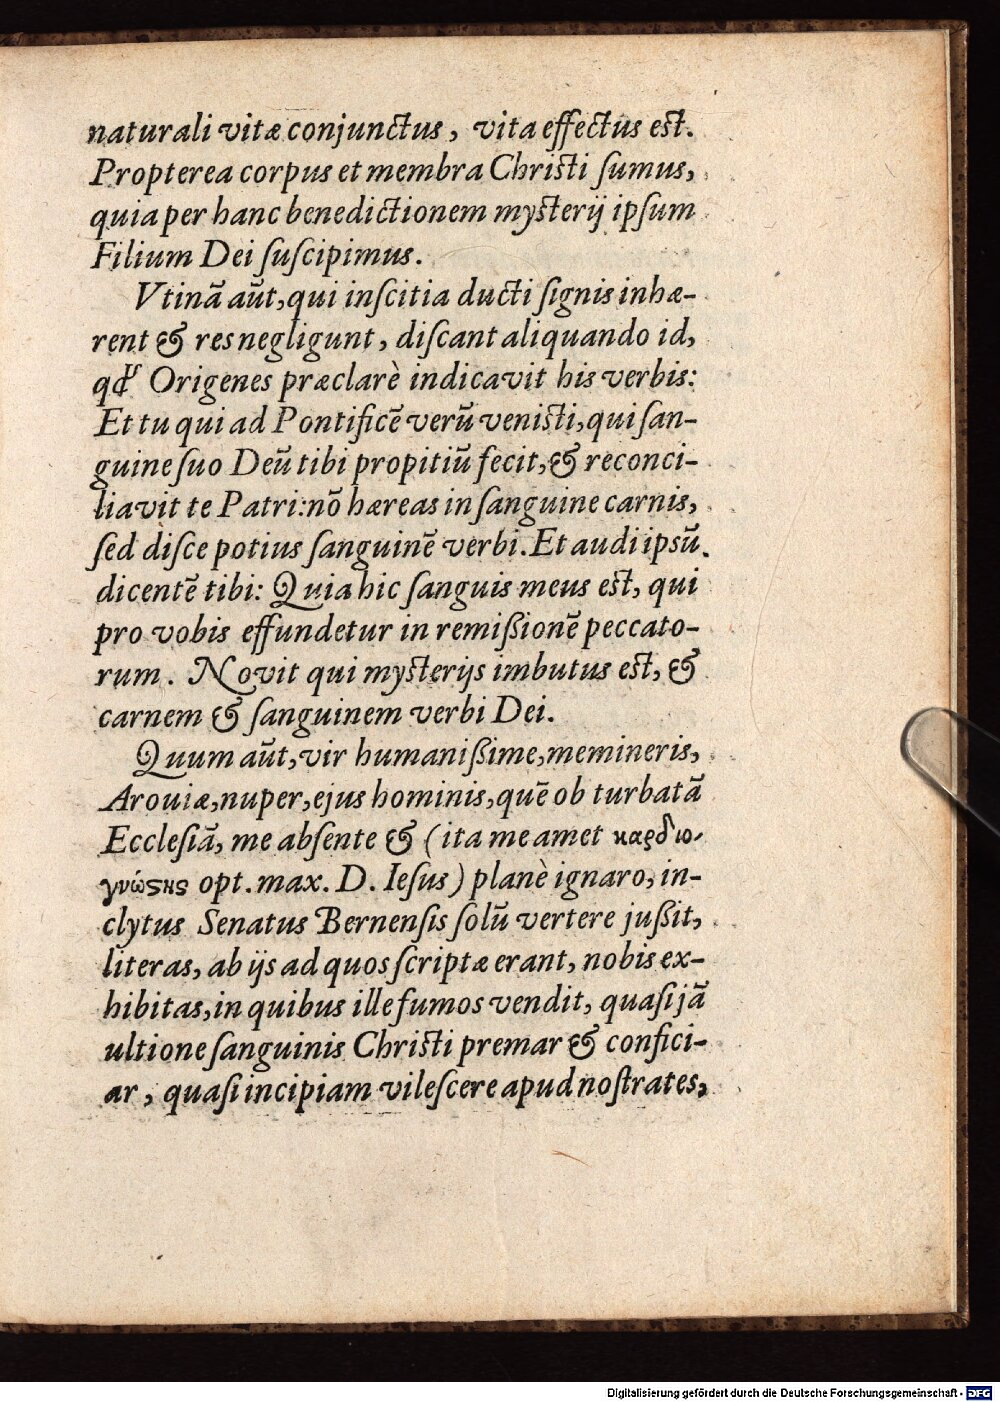 naturali vitæ conjunctus, vita effectus est.
Propterea corpus et membra Christi ſumus,
quia per hanc benedictionem mysterij ipſum
Filium Dei ſuſcipimus.
Vtinã aũt, qui inſcitia ducti ſignis inhæ-
rent & res negligunt, diſcant aliquando id,
qđ Origenes præclarè indicavit his verbis:
Et tu qui ad Pontificẽ verũ venisti, qui ſan-
guine ſuo Deũ tibi propitiũ fecit, & reconci-
liavit te Patri: nõ hæreas in ſanguine carnis,
ſed diſce potius ſanguinẽ verbi. Et audi ipsũ
dicentẽ tibi: Quia hic ſanguis meus est, qui
pro vobis effundetur in remißionẽ peccato-
rum. Novit qui mysterijs imbutus est, &
carnem & ſanguinem verbi Dei.
Quum aũt, vir humanißime, memineris,
Aroviæ, nuper, ejus hominis, quẽ ob turbatã
Eccleſiã, me abſente & (ita me amet καρδιο-
γνώςης opt. max. D. Ieſus) planè ignaro, in-
clytus Senatus Bernenſis ſolũ vertere jußit,
literas, ab ijs ad quos ſcriptæ erant, nobis ex-
hibitas, in quibus ille fumos vendit, quaſi jã
ultione ſanguinis Christi premar & confici-
ar, quaſi incipiam vileſcere apud noſtrates,
Digitalisierung gefördert durch die Deutsche Forschungsgemeinschaft - DFG